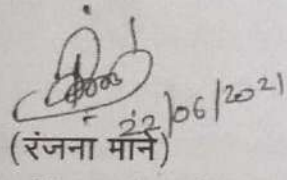 22/06/2021
(रंजना माने)